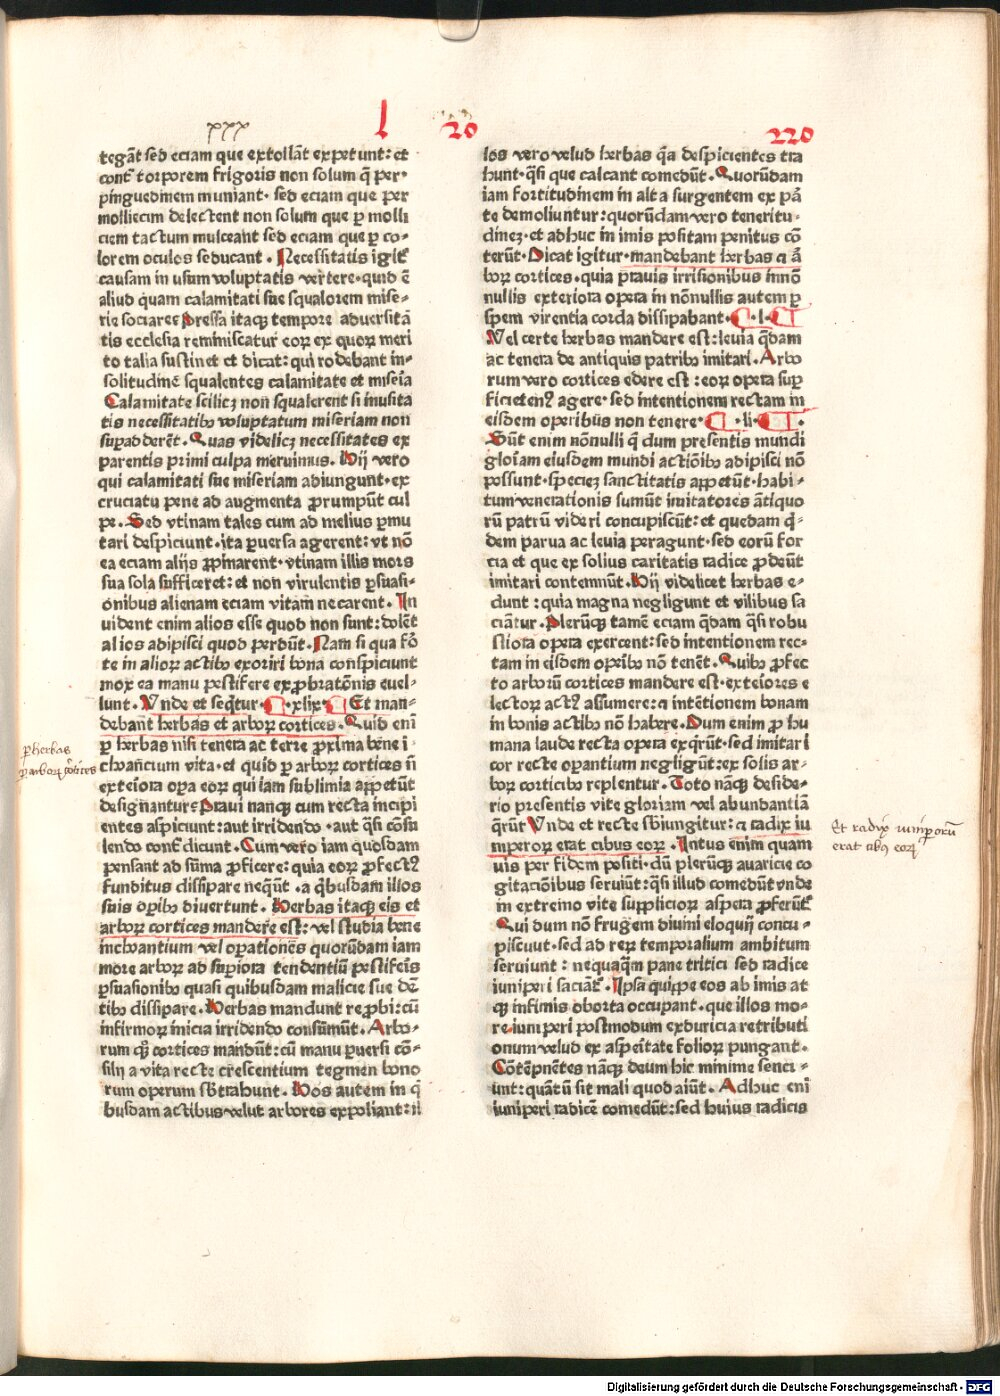 xxx
l
20
220
tegāt sed eciam que extollāt expetunt: et
cont̄ torporem frigoris non solum q̄ per⸗
pinguedinem muniant· sed eciam que per
molliciem delectent non solum que ꝑ molli
ciem tactum mulceant sed eciam que ꝑ co⸗
lorem oculos seducant · Necessitatis igit̄
causam in usum voluptatis vertere· quid ē
aliud quam calamitati sue squalorem mise⸗
rie sociare? Pressa itaqꝫ tempore aduersitā
tis ecclesia reminiscatur eoꝝ ex quoꝝ meri
to talia sustinet et dicat: qui rodebant in⸗
solitudinē squalentes calamitate et miseia
Calamitate scilicꝫ non squalerent si inusita
tis necessitatibꝫ voluptatum miseriam non
suꝑadderēt· Quas videlicꝫ necessitates ex
parentis primi culpa meruimus· Hij vero
qui calamitati sue miseriam adiungunt· ex
cruciatu pene ad augmenta ꝓrumpūt cul
pe· Sed vtinam tales cum ad melius ꝑmu
tari despiciunt· ita ꝑuersa agerent: vt nō
ea eciam alijs ꝓpinarent· vtinam illis mors
sua sola sufficeret: et non virulentis ꝑsuasi⸗
onibus alienam eciam vitam necarent· In
uident enim alios esse quod non sunt: dolēt
alios adipisci quod perdūt· Nam si qua fō
te in alioꝝ actibꝫ exoriri bona conspiciunt
mox ea manu pestifere exꝓbratōnis euel⸗
lunt· Vnde et seq̄tur · ·xlix· Et man⸗
debant herbas et arboꝝ cortices· Quid eni
ꝑ herbas nisi tenera ac terre ꝓxima bene i⸗
choancium vita· et quid ꝑ arboꝝ cortices n̄
exteriora oꝑa eoꝝ qui iam sublimia appetūt
designantur? Praui nanqꝫ cum recta incipi
entes aspiciunt: aut irridendo · aut q̄si cōsu
lendo cont̄dicunt· Cum vero iam quosdam
pensant ad sūma ꝓficere: quia eoꝝ ꝓfectꝰ
funditus dissipare neq̄ūt · a q̄busdam illos
suis oꝑibꝫ diuertunt· Herbas itaqꝫ eis et
arboꝝ cortices mandere est: vel studia bene
inchoantium vel oꝑationes quorūdam iam
more arboꝝ ad suꝑiora tendentiū pestifeis
ꝑsuasionibꝫ quasi quibusdam malicie sue dē
tibꝫ dissipare· Herbas mandunt reꝓbi: cū
infirmoꝝ inicia irridendo consūmūt· Arbo⸗
rum qꝫ cortices mandūt: cū manu ꝑuersi cō⸗
silij a vita recte crescentium tegmen bono
rum operum sb̄trahunt· Hos autem in q̄
busdam actibus velut arbores expoliant: il
los vero velud herbas q̄a despicientes tra
hunt· q̄si que calcant comedūt· Quorūdam
iam fortitudinem in alta surgentem ex pā
te demoliuntur: quorūdam vero teneritu⸗
dineꝫ· et adhuc in imis positam penitus cō
terūt· Dicat igitur· mandebant herbas ⁊ ā
boꝝ cortices· quia prauis irrisionibus in nō
nullis exteriora opera in nōnullis autem ꝑ
spem virentia corda dissipabant· · l ·
Vel certe herbas mandere est: leuia q̄dam
ac tenera de antiquis patribꝫ imitari· Arbo
rum vero cortices edere est: eoꝝ opera suꝑ
ficietenꝰ agere· sed intentionem rectam in
eisdem operibus non tenere· · li·
Sūt enim nōnulli q̄ dum presentis mundi
gloiam eiusdem mundi actiōibꝫ adipisci nō
possunt· specieꝫ sanctitatis appetūt· habi⸗
tum venerationis sumūt imitatores ātiquo
rū patrū videri concupiscūt: et quedam q̄⸗
dem parua ac leuia peragunt· sed eorū for
cia et que ex solius caritatis radice ꝓdeūt
imitari contemnūt· Hij videlicet herbas e⸗
dunt: quia magna negligunt et vilibus sa
ciātur· Pleruqꝫ tamē eciam q̄dam q̄si robu
stiora opera exercent: sed intentionem rec⸗
tam in eisdem oꝑibꝫ nō tenēt· Quibꝫ ꝓfec
to arborū cortices mandere est· exteiores e
lectoꝝ actꝰ assumere: ⁊ intētionem bonam
in bonis actibꝫ nō habere· Dum enim ꝓ hu
mana laude recta opera exq̄rūt· sed imitari
cor recte oꝑantium negligūt: ex solis ar⸗
boꝝ corticibꝫ replentur· Toto nāqꝫ deside⸗
rio presentis vite gloriam vel abundantiā
q̄rūt Vnde et recte sb̄iungitur: ⁊ radix iu
niperoꝝ erat cibus eoꝝ· Intus enim quam
uis per fidem positi· dū pleruqꝫ auaricie co
gitaciōnibus seruiūt: q̄si illud comedūt vnde
in extremo vite supplicioꝝ aspera ꝓferūt̄
Qui dum nō frugem diuini eloquij concu⸗
piscuut· sed ad reꝝ temporalium ambitum
seruiunt: nequaq̄m pane tritici sed radice
iuniperi saciāt̄· Ipsa quippe eos ab imis at
qꝫ infimis oborta occupant· que illos mo⸗
re iuniperi postmodum exduricia retributi
onum velud ex aspeitate folioꝝ pungant·
Cōtēpnētes nāqꝫ deum hic minime senci⸗
unt: quātū sit mali quod aiūt· Adhuc eni
iuniperi radicē comedūt: sed huius radicis
ꝑ herbas
ꝑ arboꝝ cortices
Et radix iuniperorū
erat cibꝰ eoꝝ
Digitalisierung gefördert durch die Deutsche Forschungsgemeinschaft - DFG